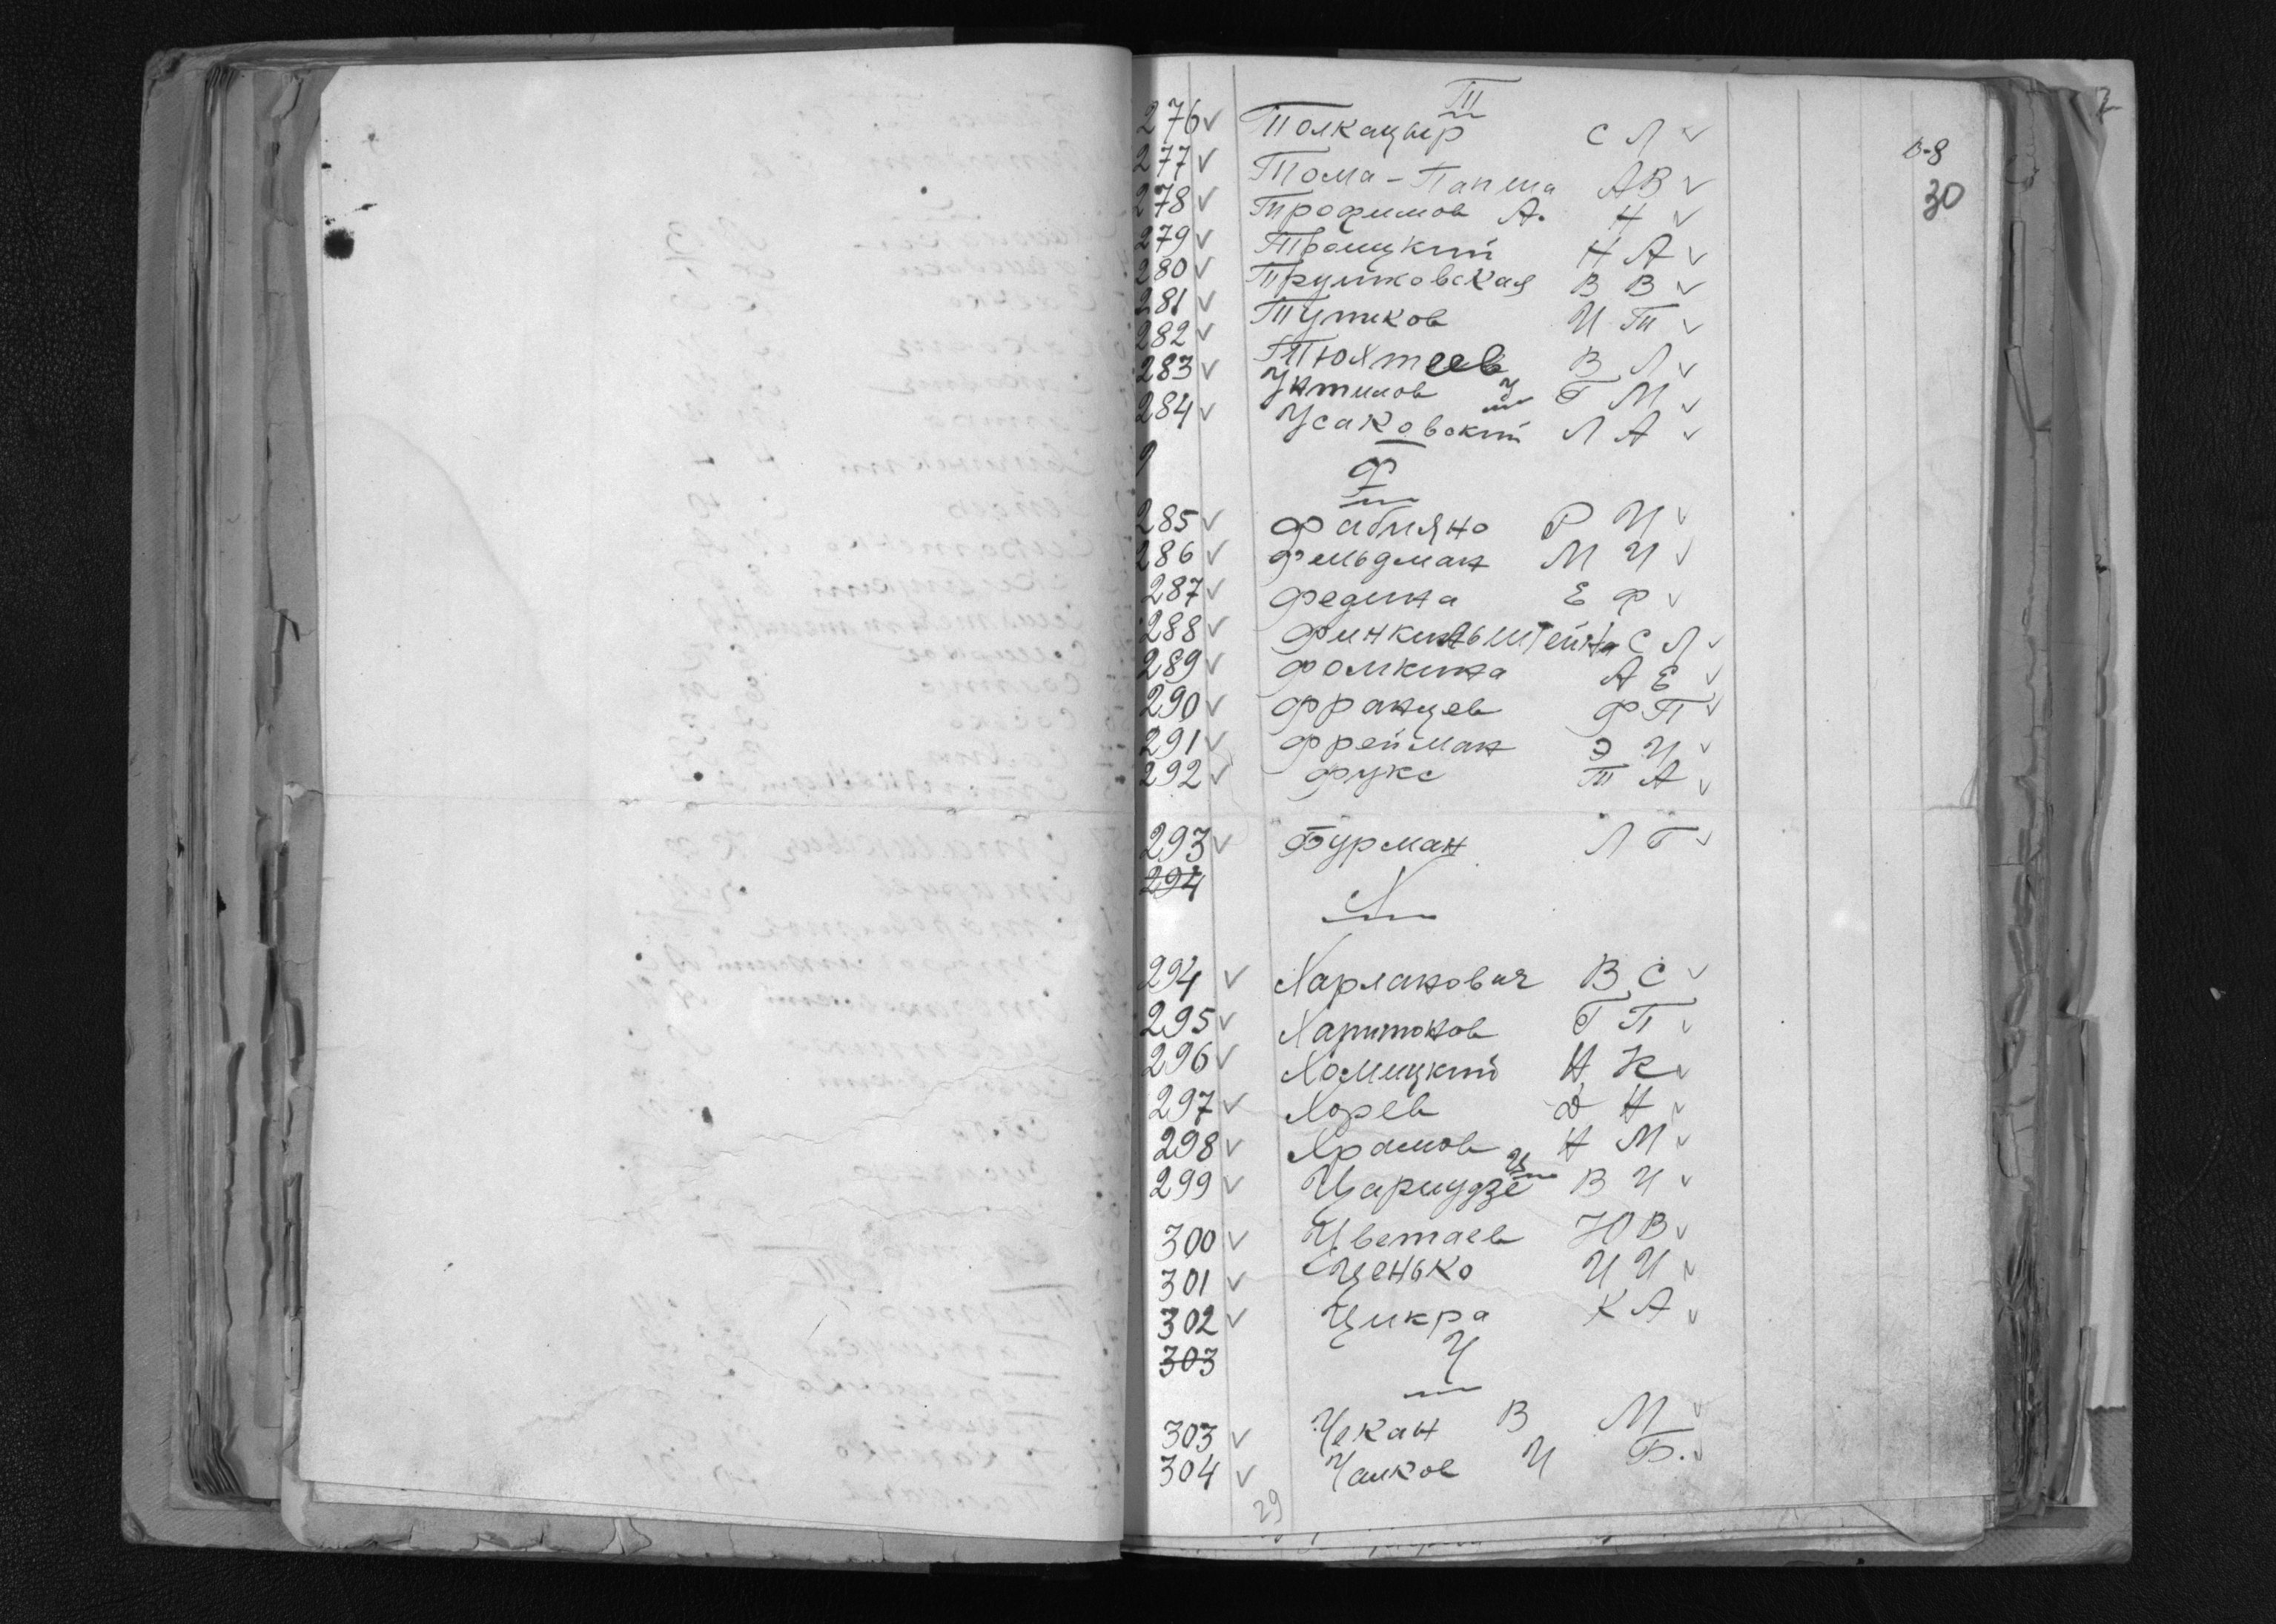 Т
276 ✓ Толкацыр С Л ✓
в-8
277 ✓ Тома-Папша А В ✓
30
278 ✓ Трофимов А. Н ✓
279 ✓ Троицкий Н А ✓
280 ✓ Трушковская В В ✓
281 ✓ Тупиков И Т ✓
282 ✓ Тюхтеев В Л ✓
У
283 ✓ Уктилов Г М ✓
284 ✓ Усаковский Л А ✓
Ф
285 ✓ Фабияно Р И ✓
286 ✓ Фельдман М И ✓
287 ✓ Федина Е Ф ✓
288 ✓ Финкильштейн С Л ✓
289 ✓ Фомкина А Е ✓
290 ✓ Францев Ф П ✓
291 ✓ Фрейман Э И ✓
292 ✓ Фукс Т А ✓
293 ✓ Фурман Л Г ✓
294
Х
294 ✓ Харланович В С ✓
295 ✓ Харитонов Г П ✓
296 ✓ Хомицкий Н К ✓
297 ✓ Хорев Д Н ✓
298 ✓ Храмов Н М ✓
Ц
299 ✓ Цариудзе В И ✓
300 ✓ Цветаев Ю В ✓
301 ✓ Ценько И И ✓
302 ✓ Цикра К А ✓
303 Ч
303 ✓ Чекан В М ✓
304 ✓ Чалков И Б. ✓
29